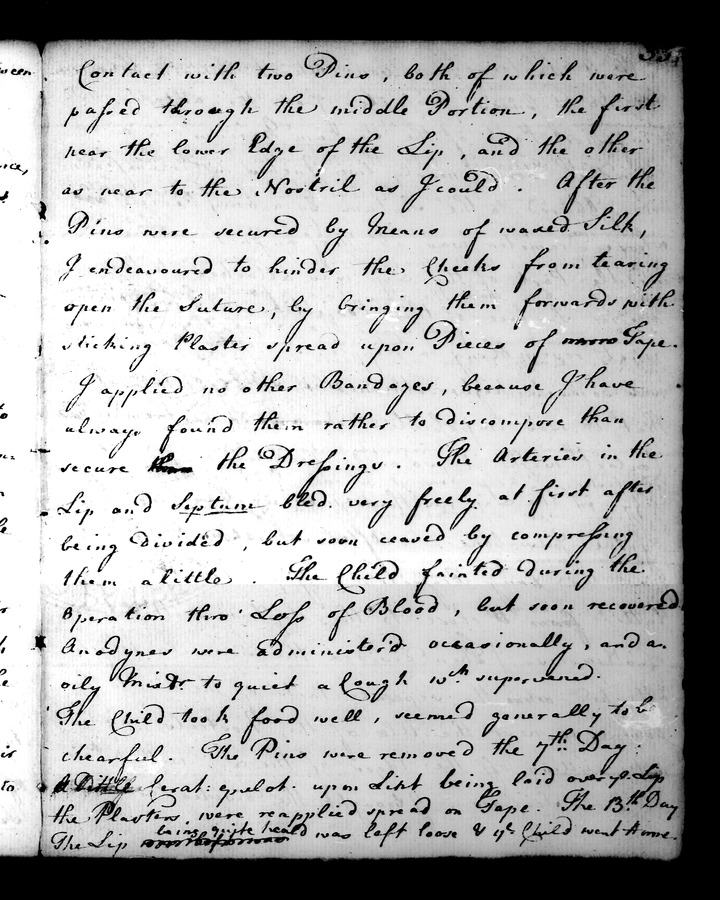 Contact with two Pins, both of which were
passed through the middle Portion, the first
near the lower Edge of the Lip, and the other
as near to the Nostril as I could. After the
Pins were secured by Means of waxed Silk,
I endeavoured to hinder the Cheeks from tearing
open the Suture, by bringing them forwards with
sticking Plaster spread upon Pieces of Tape.
I applied no other Bandages, because I have
always found them rather to discompose than
secure the Dressings. The Arteries in the
Lip and Septum bled very freely at first after
being divided, but soon ceased by compressing
them a little. The Child fainted during the
Operation thro' Loss of Blood, but soon recovered
Anodynes were administer'd occasionally, and an
oily Mixtr to quiet a Cough wch supervened.
The Child took food well, seemed generally to be
chearful. The Pins were removed the 7th. Day.
A Little Cerat: epulot. upon Lint being laid over ye. Lip
the Plasters, were reapplied spread on Tape. The 13th Day
being quite heal'd
The Lip was left loose & ye Child went Home.